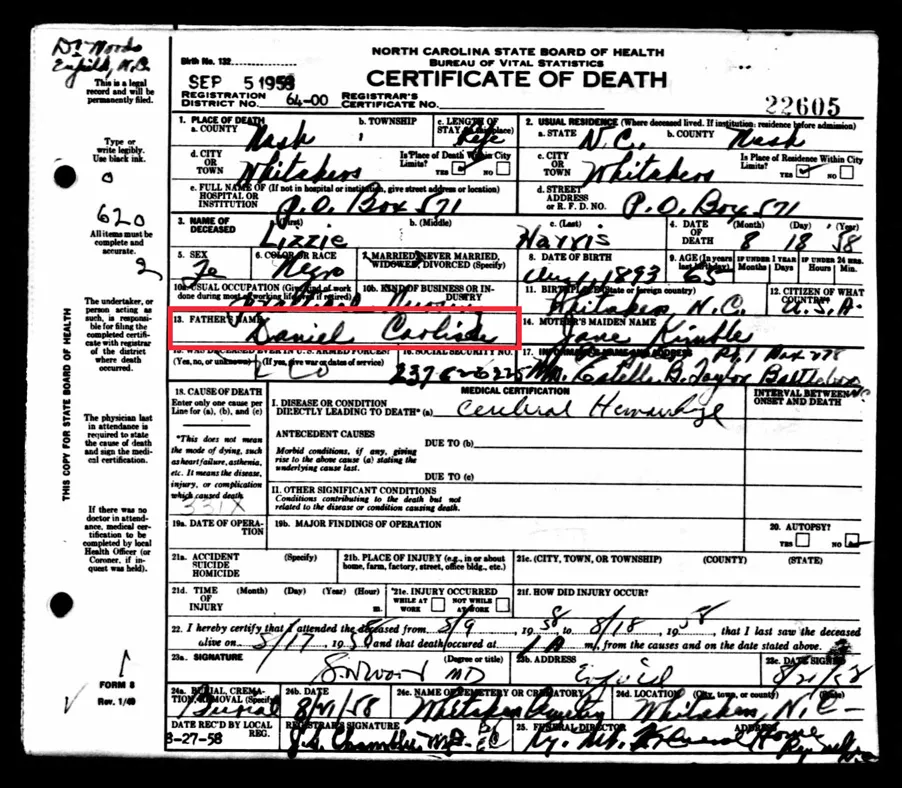 Dr Woods
Enfield, N.C.
This is a legal
record and will be
permanently filed.
Type or
write legibly.
Use black ink.
0
620
All items must be
complete and
accurate.
2
The undertaker, or
person acting
as such, is responsi-
ble for filing the
completed certifi-
cate with registrar
of the district
where death
occurred.
The physician last
in attendance is
required to state
the cause of death
and sign the medi-
cal certification.
If there was no
doctor in attend-
ance, medical cer-
tification to be
completed by local
Health Officer (or
Coroner, if in-
quest was held).
FORM 8
Rev. 1/49
THIS COPY FOR STATE BOARD OF HEALTH
NORTH CAROLINA STATE BOARD OF HEALTH
BUREAU OF VITAL STATISTICS
CERTIFICATE OF DEATH
Birth No. 132
SEP 5 1958
REGISTRATION DISTRICT NO. 64-00 REGISTRAR'S CERTIFICATE NO.
22605
1. PLACE OF DEATH
a. COUNTY Nash b. TOWNSHIP c. LENGTH OF STAY (in this place) Life
2. USUAL RESIDENCE (Where deceased lived. If institution: residence before admission)
a. STATE N.C. b. COUNTY Nash
d. CITY OR TOWN Whitakers Is Place of Death Within City Limits? YES NO
c. CITY OR TOWN Whitakers Is Place of Residence Within City Limits? YES NO
e. FULL NAME OF (If not in hospital or institution, give street address or location) HOSPITAL OR INSTITUTION P.O. Box 571
d. STREET ADDRESS or R. F. D. NO. P.O. Box 571
3. NAME OF DECEASED (First) Lizzie b. (Middle) c. (Last) Harris
4. DATE OF DEATH (Month) (Day) (Year) 8 18 58
5. SEX Fe 6. COLOR OR RACE Negro 7. MARRIED, NEVER MARRIED, WIDOWED, DIVORCED (Specify)
8. DATE OF BIRTH 1893 9. AGE (In years last birthday) 65 IF UNDER 1 YEAR Months Days IF UNDER 24 HRS. Hours Min.
10a. USUAL OCCUPATION (Give kind of work done during most of working life, even if retired) 10b. KIND OF BUSINESS OR INDUSTRY
11. BIRTHPLACE (State or foreign country) Whitakers N.C. 12. CITIZEN OF WHAT COUNTRY? U.S.A.
13. FATHER'S NAME Daniel
14. MOTHER'S MAIDEN NAME Jane Kimble
15. WAS DECEASED EVER IN U. S. ARMED FORCES? (Yes, no, or unknown) (If yes, give war or dates of service)
16. SOCIAL SECURITY NO.
17. INFORMANT'S NAME AND ADDRESS Rt. 1 Box 278
Estelle B. Taylor Battleboro NC
18. CAUSE OF DEATH
Enter only one cause per Line for (a), (b), and (c)
MEDICAL CERTIFICATION
INTERVAL BETWEEN ONSET AND DEATH
I. DISEASE OR CONDITION
DIRECTLY LEADING TO DEATH* (a) Cerebral Hemorrhage
*This does not mean the mode of dying, such as heart failure, asthenia, etc. It means the disease, injury, or complication which caused death.
331X
ANTECEDENT CAUSES
DUE TO (b)
Morbid conditions, if any, giving rise to the above cause (a) stating the underlying cause last.
DUE TO (c)
II. OTHER SIGNIFICANT CONDITIONS
Conditions contributing to the death but not related to the disease or condition causing death.
19a. DATE OF OPERATION 19b. MAJOR FINDINGS OF OPERATION 20. AUTOPSY? YES NO
21a. ACCIDENT SUICIDE HOMICIDE (Specify) 21b. PLACE OF INJURY (e.g., in or about home, farm, factory, street, office bldg., etc.) 21c. (CITY, TOWN, OR TOWNSHIP) (COUNTY) (STATE)
21d. TIME OF INJURY (Month) (Day) (Year) (Hour) m. 21e. INJURY OCCURRED WHILE AT WORK NOT WHILE AT WORK 21f. HOW DID INJURY OCCUR?
22. I hereby certify that I attended the deceased from 8/9, 1958 to 8/18, 1958, that I last saw the deceased
alive on 8/17, 1958 and that death occurred at 1 A m., from the causes and on the date stated above.
23a. SIGNATURE (Degree or title) MD 23b. ADDRESS Enfield 23c. DATE SIGNED 8/21/58
24a. BURIAL, CREMATION, REMOVAL (Specify) Burial 24b. DATE 8/21/58 24c. NAME OF CEMETERY OR CREMATORY Whitakers Cemetery 24d. LOCATION (City, town, or county) (State) Whitakers, N.C.
DATE REC'D BY LOCAL REG. 8-27-58 REGISTRAR'S SIGNATURE 25. FUNERAL DIRECTOR ADDRESS